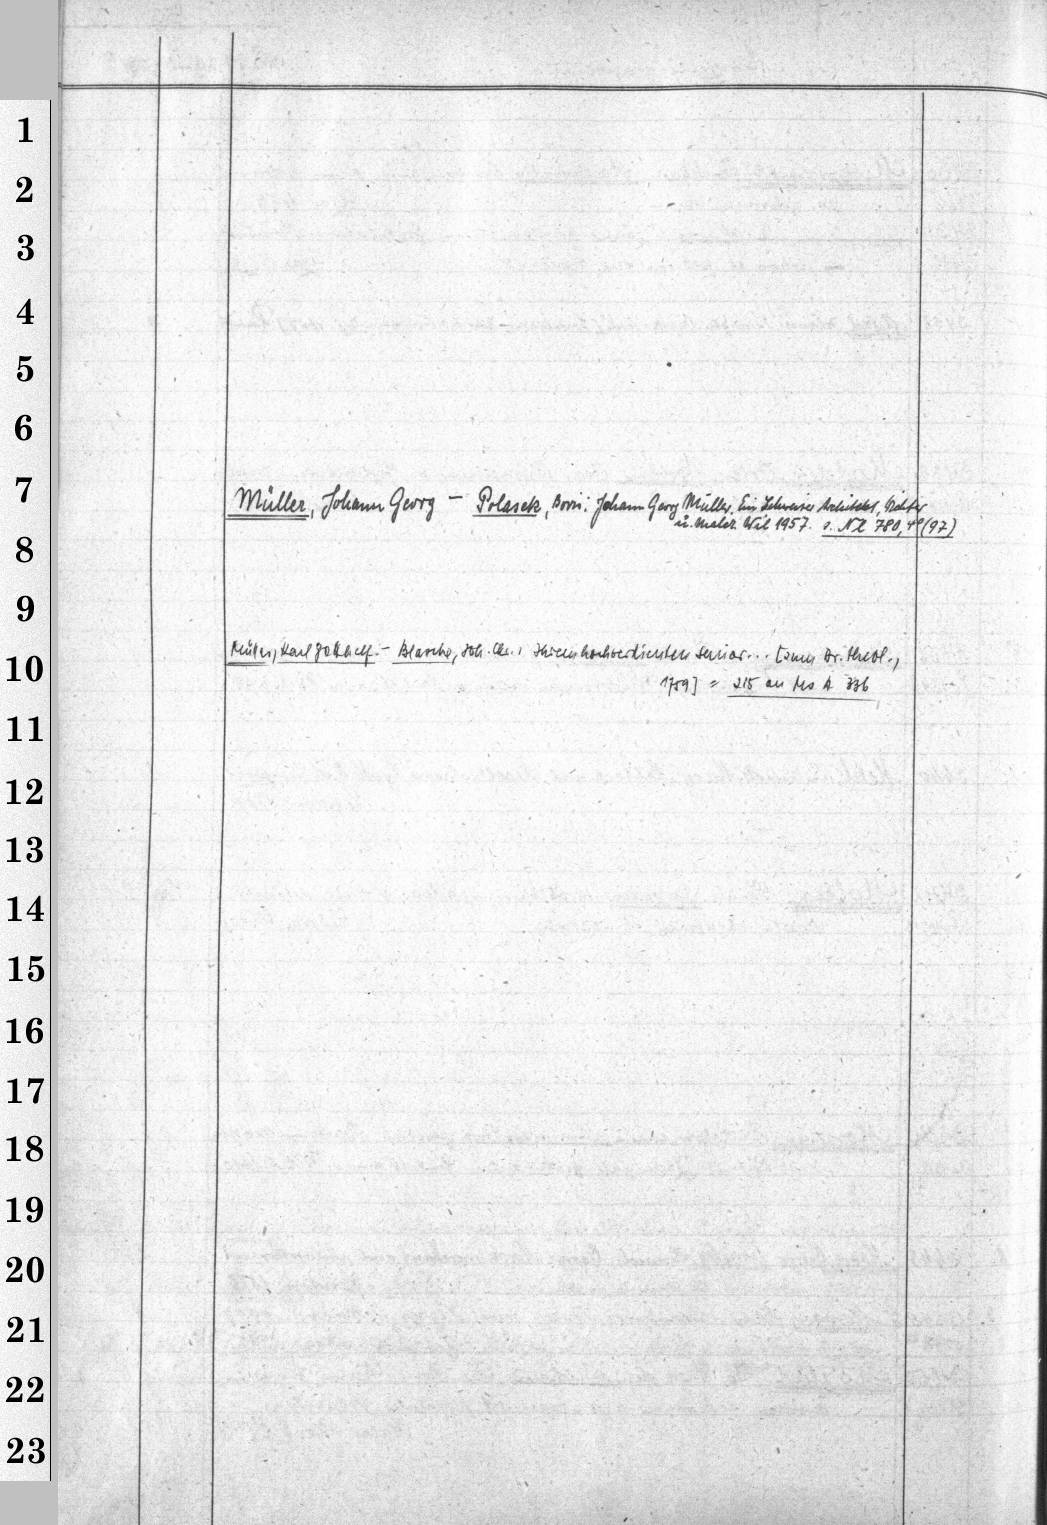 1
2
3
4
5
6
7
Müller, Johann Georg — Polasek, Boris: Johann Georg Müller, Ein Schweizer Architekt, Dichter
u. Maler. Wil 1957. s. NL 780, 4° (97)
8
9
10
Müller, Karl Gotthelf. — Blasche, Joh. Chr., Ihrem hochverdienten Senior... [zum Dr. theol.,
1759] = 215 an Ms A 336
11
12
13
14
15
16
17
18
19
20
21
22
23